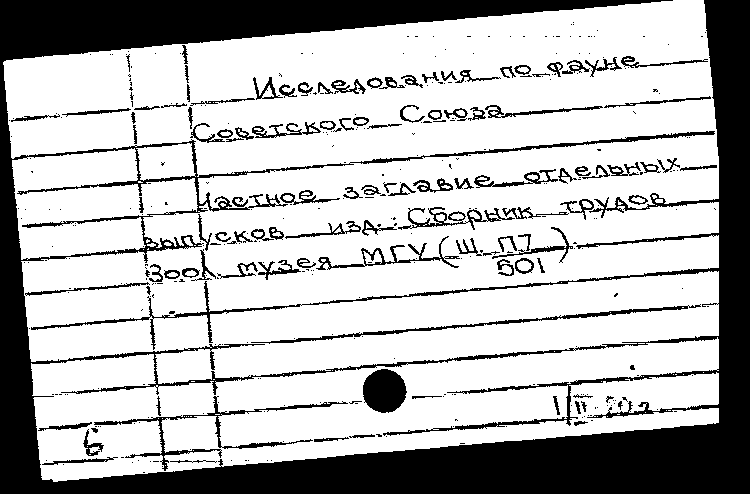 Исследования по фауне
Советского Союза
Частное заглавие отдельных
выпусков изд.: Сборник трудов
Зоол музея МГУ (Ш П7/501)
1/II
6